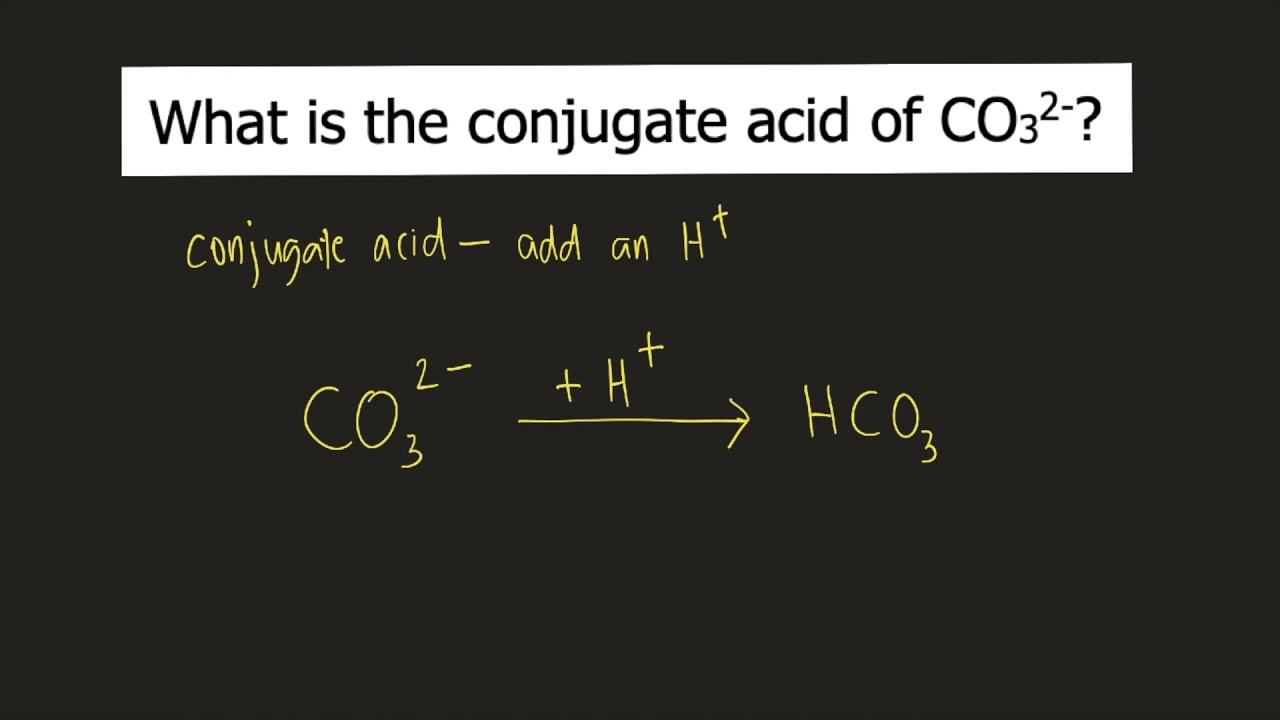 What is the conjugate acid of CO₃²⁻?
conjugate acid – add an H⁺
CO₃²⁻ + H⁺ → HCO₃